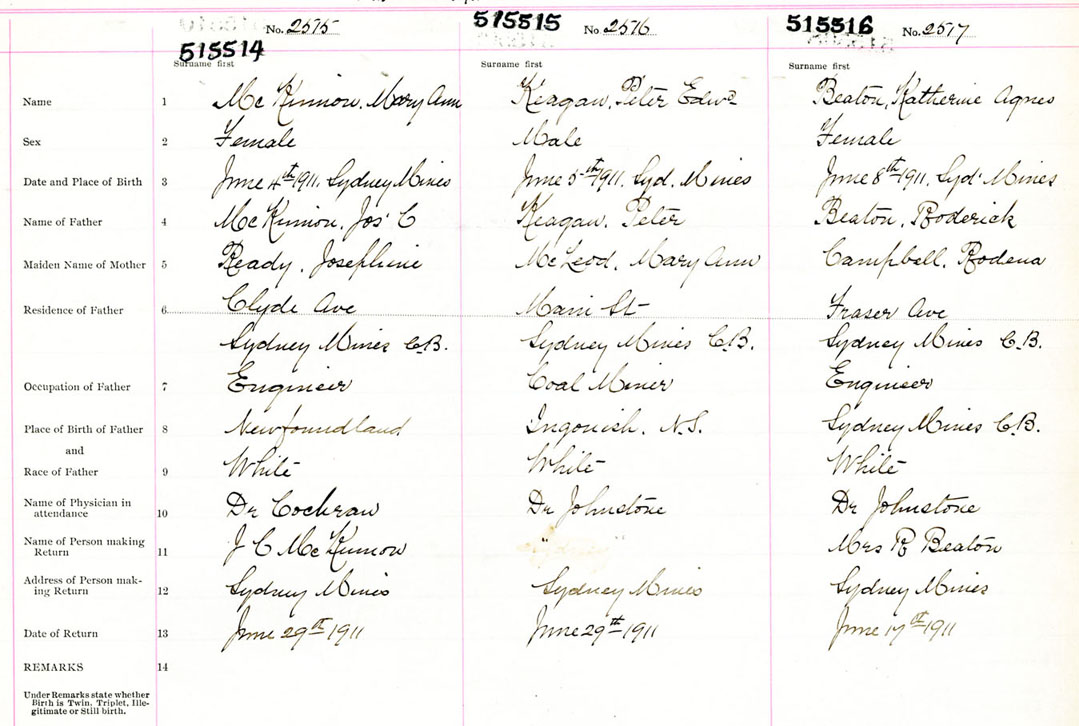 515514 No. 2575 515515 No 2576 515516 No. 2577
Surname first Surname first Surname first
Name 1 Mc Kinnon, Mary Ann Keagan, Peter Edwd Beaton, Katherine Agnes
Sex 2 Female Male Female
Date and Place of Birth 3 June 4th 1911. Sydney Mines June 5th 1911. Syd. Mines June 8th 1911. Syd' Mines
Name of Father 4 Mc Kinnon, Jos' C Keagan, Peter Beaton, Roderick
Maiden Name of Mother 5 Ready, Josephine McLeod, Mary Ann Campbell, Rodena
Residence of Father 6 Clyde Ave Main St Fraser Ave
Sydney Mines C.B. Sydney Mines C.B. Sydney Mines C.B.
Occupation of Father 7 Engineer Coal Miner Engineer
Place of Birth of Father 8 Newfoundland Ingonish. N.S. Sydney Mines C.B.
and
Race of Father 9 White White White
Name of Physician in
attendance 10 Dr Cochran Dr Johnstone Dr Johnstone
Name of Person making
Return 11 J C McKinnon " Mrs R Beaton
Address of Person mak-
ing Return 12 Sydney Mines Sydney Mines Sydney Mines
Date of Return 13 June 29th 1911 June 29th 1911 June 17th 1911
REMARKS 14
Under Remarks state whether
Birth is Twin, Triplet, Ille-
gitimate or Still birth.